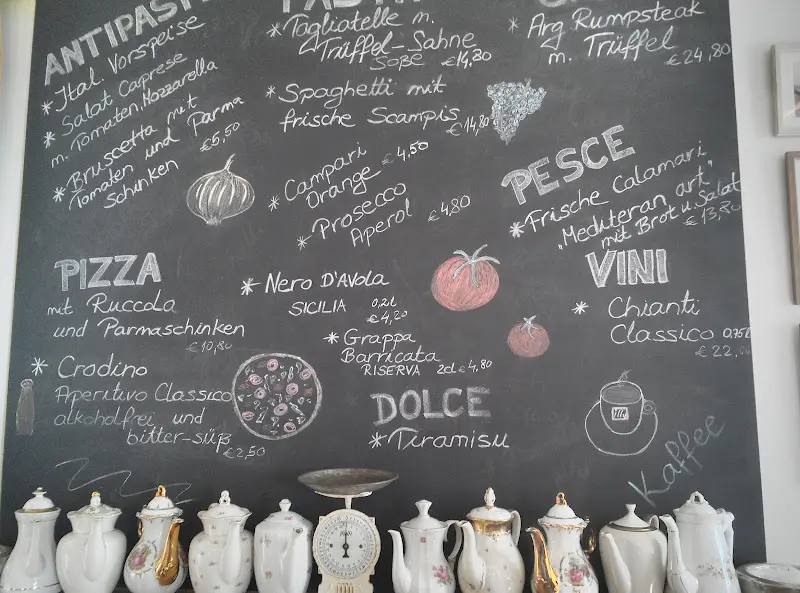 ANTIPASTI
* Ital. Vorspeise
* Salat Caprese
m. Tomaten, Mozzarella
* Bruscetta mit
Tomaten und Parma
Schinken €5,50
* Tagliatelle m.
Trüffel-Sahne
Soße €14,80
* Spaghetti mit
frische Scampis
€14,80
* Campari €4,50
Orange
* Prosecco
Aperol €4,80
* Arg Rumpsteak
m. Trüffel
€24,80
PESCE
* Frische Calamari
"Mediteran art"
mit Brot u. Salat
€13,80
PIZZA
mit Ruccola
und Parmaschinken
€10,80
* Crodino
Aperitivo Classico
alkoholfrei und
bitter-süß
€2,50
* Nero D'Avola
SICILIA 0,2l
€4,20
* Grappa
Barricata
RISERVA 2cl €4,80
DOLCE
* Tiramisu
VINI
* Chianti
Classico 0,75l
Kaffee